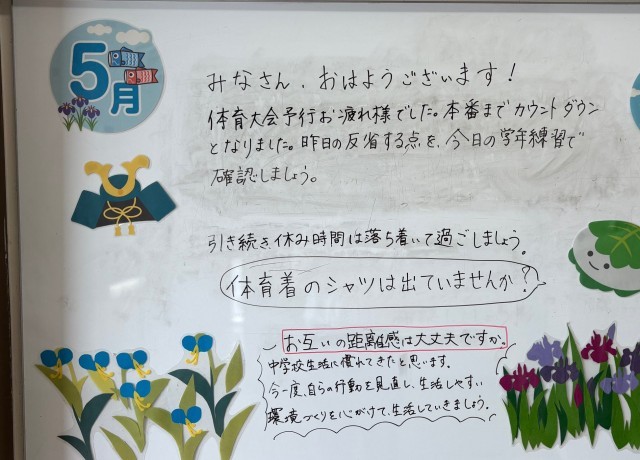 5月
みなさん、おはようございます!
体育大会予行お疲れ様でした。本番までカウントダウン
となりました。昨日の反省する点を、今日の学年練習で
確認しましょう。
引き続き、休み時間は落ち着いて過ごしましょう。
体育着のシャツは出ていませんか?
お互いの距離感は大丈夫ですか。
中学校生活に慣れてきたと思います。
今一度、自らの行動を見直し、生活しやすい
環境づくりを心がけて、生活していきましょう。